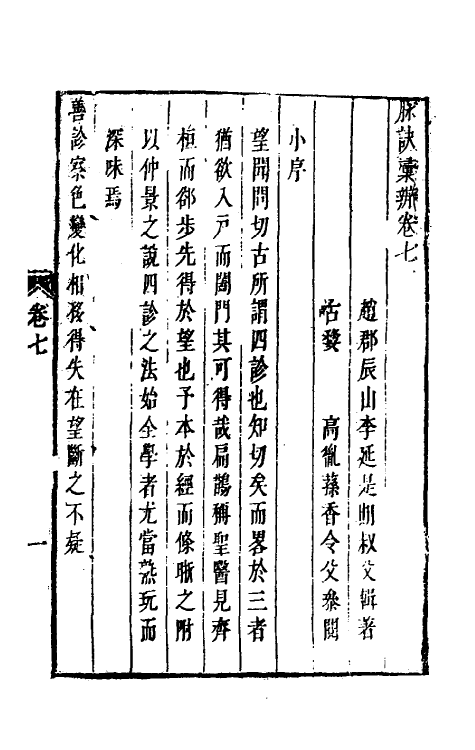 脉訣彙辨卷七
趙郡辰山李延是期叔父輯著
古婺　高胤蓀香令父叅閱
小序
望聞問切古所謂四診也知切矣而畧於三者
猶欲入戶而闔門其可得哉扁鵲稱聖醫見齊
桓而郤步先得於望也予本於經而條晰之附
以仲景之說四診之法始全學者尤當熟玩而
深味焉
善診察色變化相移得失在望斷之不疑
卷七
一